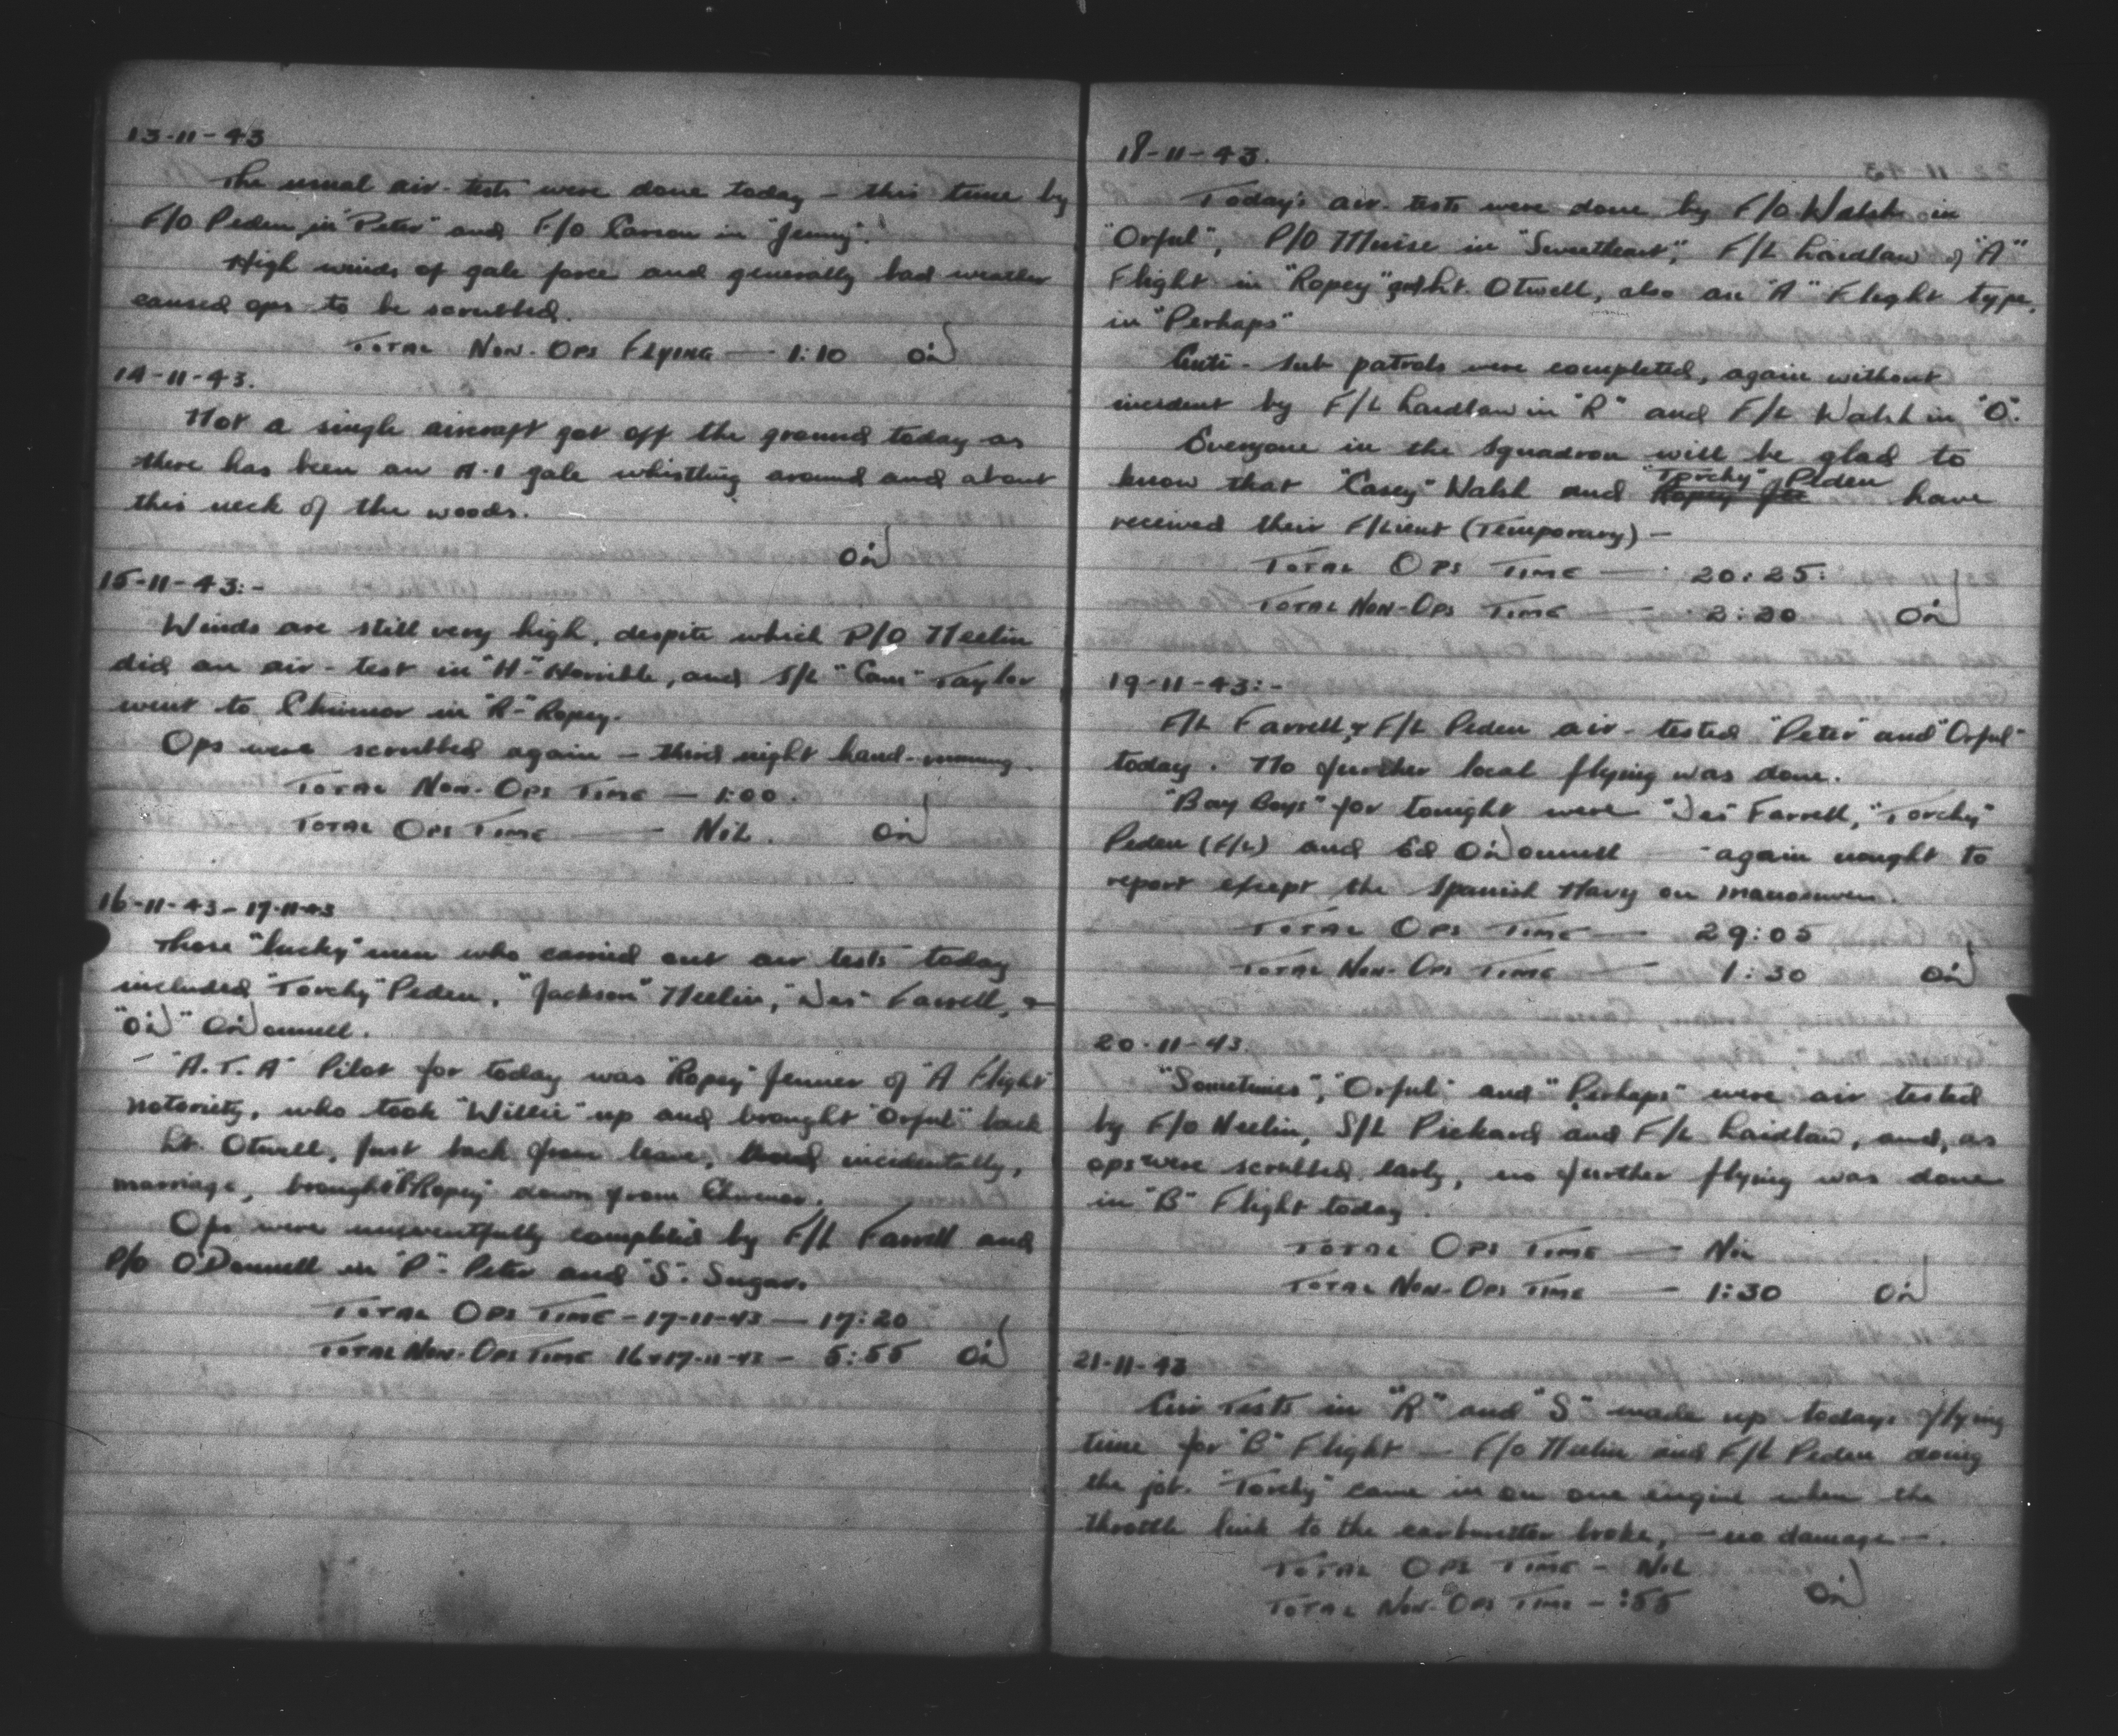 13-11-43
The usual air-tests were done today - this time by
F/O Peden in "Peter" and F/O Carson in "Jenny".
High winds of gale force and generally bad weather
caused ops to be scrubbed.
TOTAL NON-OPS FLYING - 1:10 OD
14-11-43.
Not a single aircraft got off the ground today as
there has been an A-1 gale whistling around and about
this neck of the woods.
OD
15-11-43:-
Winds are still very high, despite which P/O Neelin
did an air-test in "H"-Horrible, and S/L "Cam" Taylor
went to Chivenor in "R"-Ropey.
Ops were scrubbed again - third night hand-running.
TOTAL NON-OPS TIME - 1:00.
TOTAL OPS TIME - NIL. OD
16-11-43 - 17-11-43
Those "lucky" men who carried out air tests today
included "Torchy" Peden, "Jackson" Neelin, "Des" Farrell, &
"OD" O'Donnell.
- "A.T.A" Pilot for today was "Ropey" Jenner of "A Flight"
notoriety, who took "Willie" up and brought "Orful" back
Lt. Otwell, just back from leave, incidentally,
marriage, brought "Ropey" down from Chivenor.
Ops were uneventfully completed by F/L Farrell and
P/O O'Donnell in "P"-Peter and "S"-Sugar.
TOTAL OPS TIME - 17-11-43 - 17:20
TOTAL NON-OPS TIME 16+17-11-43 - 5:55 OD
18-11-43.
Today's air-tests were done by F/O Walsh in
"Orful", P/O Muise in "Sweetheart", F/L Laidlaw of "A"
Flight in "Ropey" Lt. Otwell, also an "A" Flight type,
in "Perhaps"
Anti-sub patrols were completed, again without
incident by F/L Laidlaw in "R" and F/L Walsh in "O".
Everyone in the squadron will be glad to
know that "Casey" Walsh and "Torchy" Peden have
received their F/Lieut (Temporary) -
TOTAL OPS TIME - 20:25:
TOTAL NON-OPS TIME - 2:20 OD
19-11-43:-
F/L Farrell & F/L Peden air-tested "Peter" and "Orful"
today. No further local flying was done.
"Bay Boys" for tonight were "Des" Farrell, "Torchy"
Peden (F/L) and Ed O'Donnell - again nought to
report except the Spanish Navy on manoeuvers.
TOTAL OPS TIME - 29:05
TOTAL NON-OPS TIME - 1:30 OD
20-11-43.
"Sometimes", "Orful" and "Perhaps" were air tested
by F/O Neelin, S/L Pickard and F/L Laidlaw, and, as
ops were scrubbed early, no further flying was done
in "B" Flight today.
TOTAL OPS TIME - NIL
TOTAL NON-OPS TIME - 1:30 OD
21-11-43
Air Tests in "R" and "S" made up todays flying
time for "B" Flight - F/O Neelin and F/L Peden doing
the job. "Torchy" came in on one engine when the
throttle link to the carburettor broke, - no damage -.
TOTAL OPS TIME - NIL
TOTAL NON-OPS TIME - :55 OD